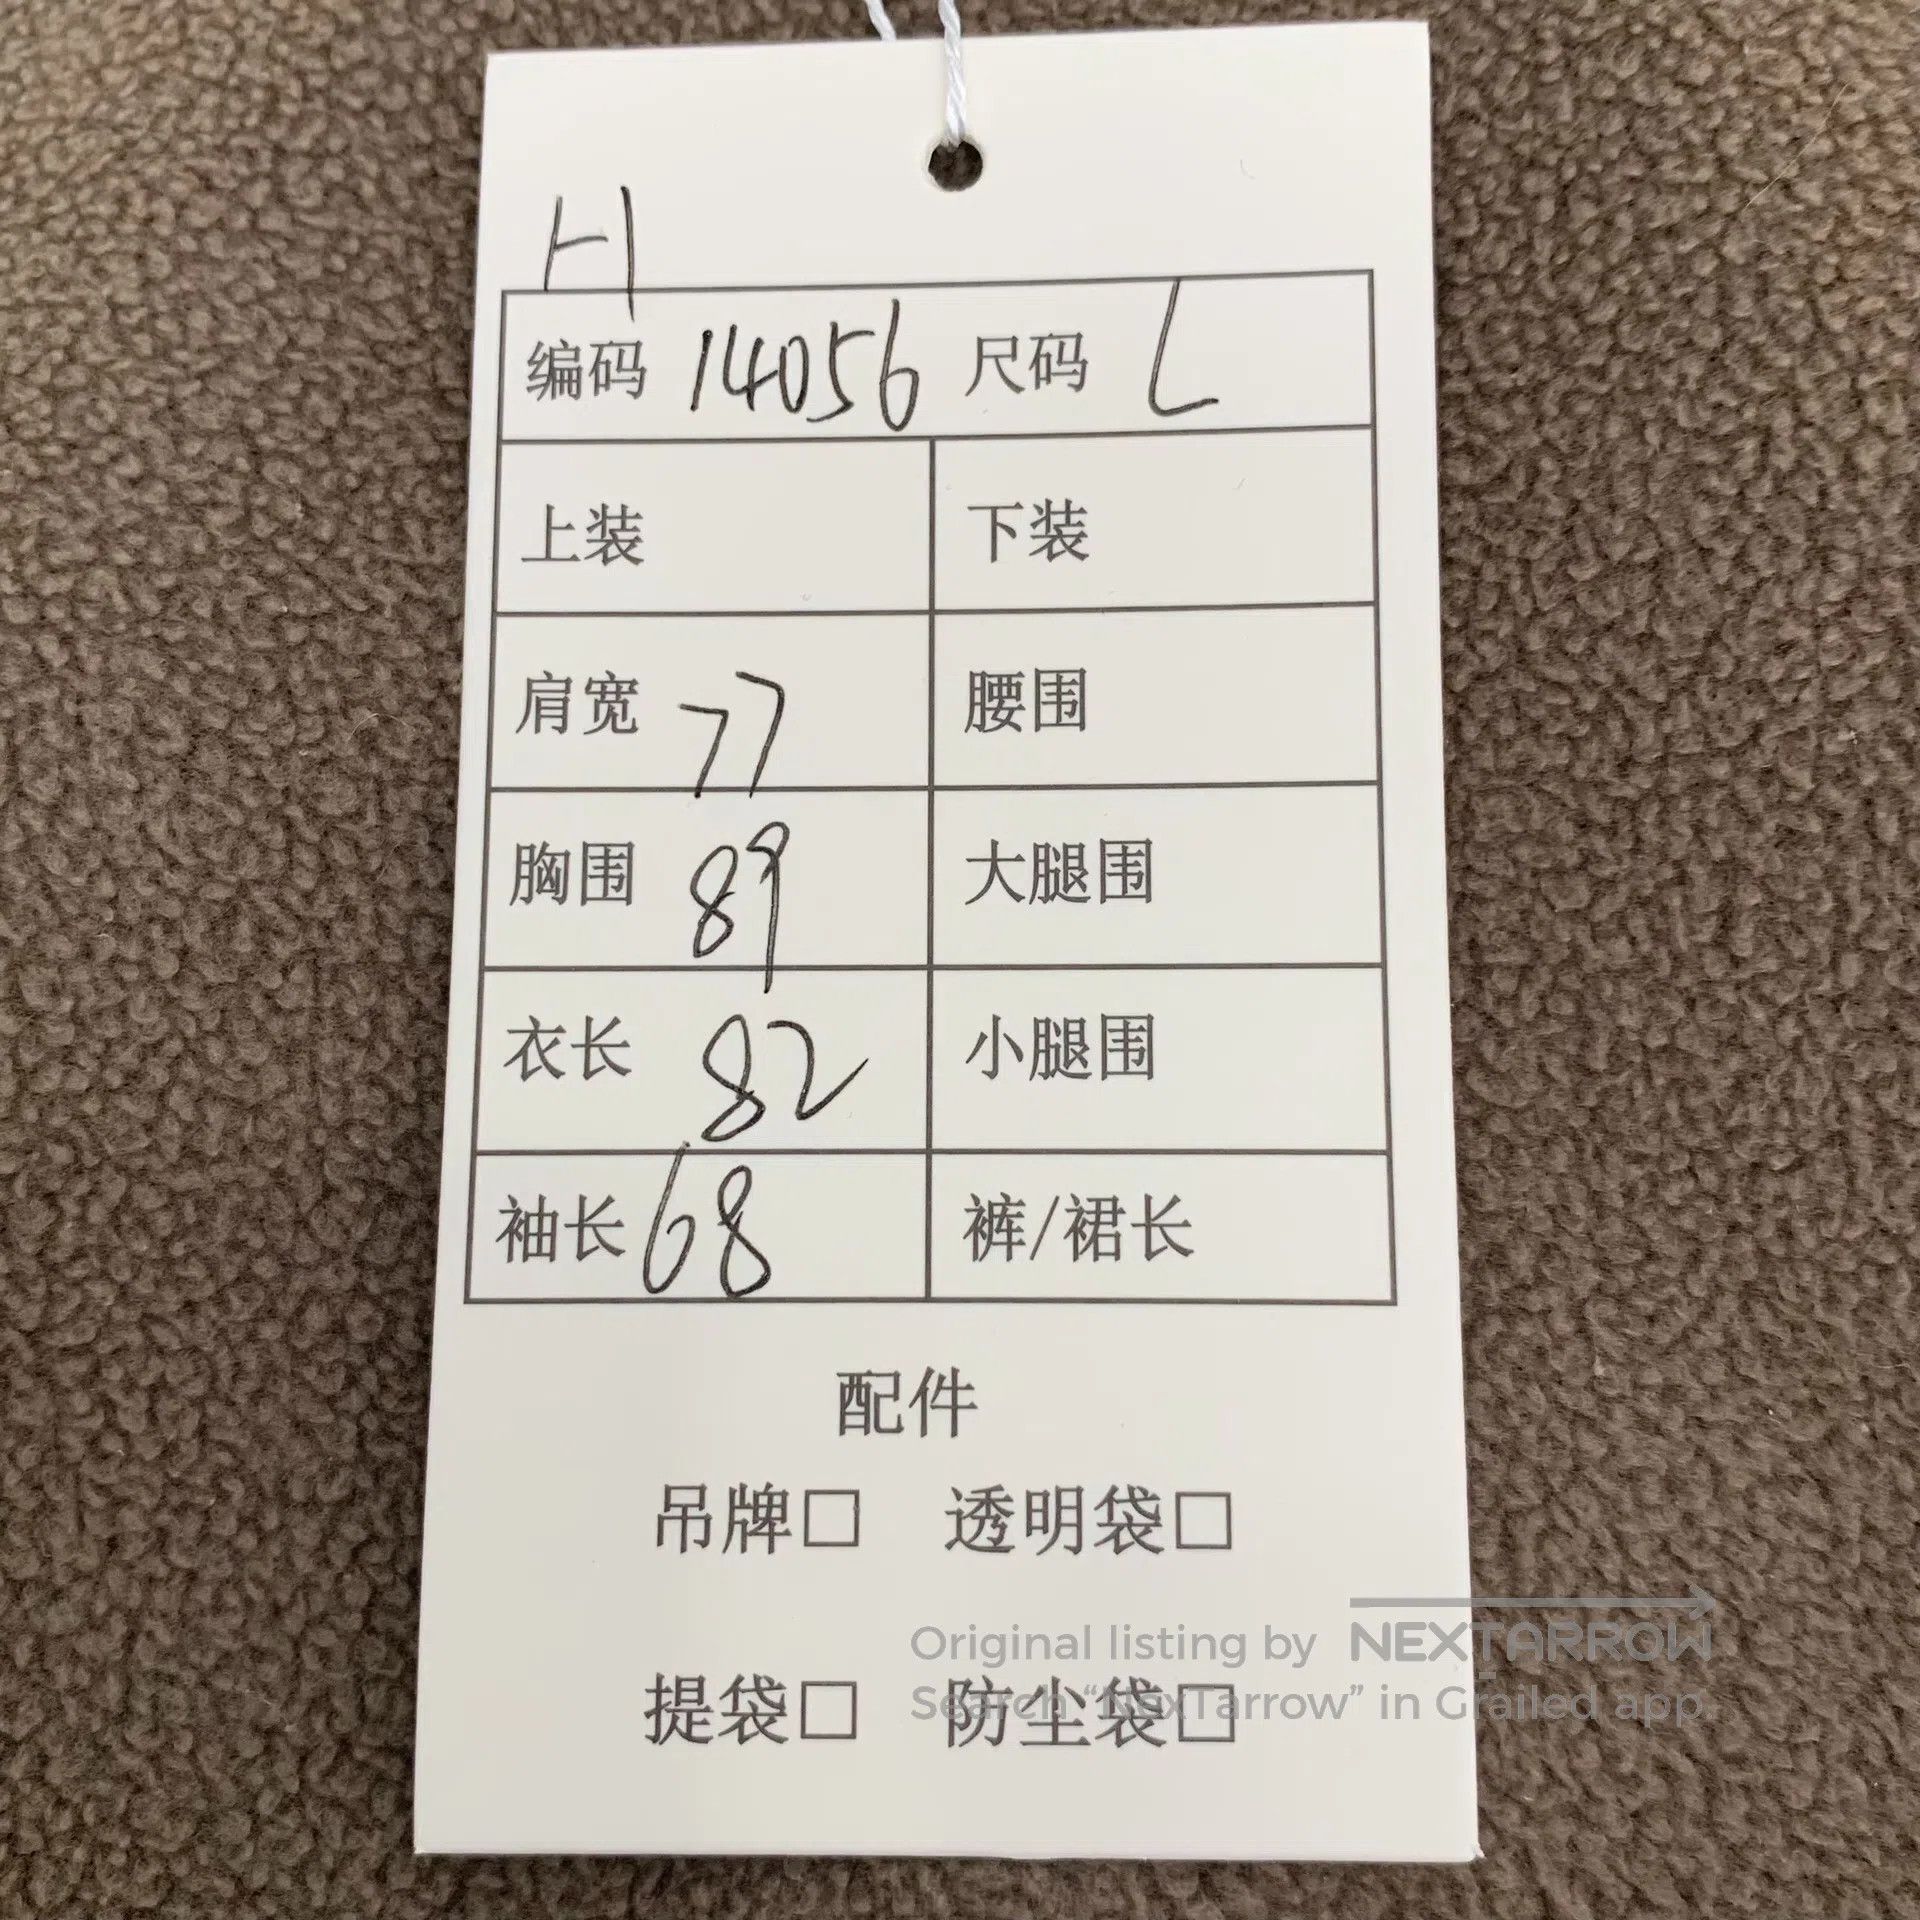 H
编码 14056 尺码 L
上装 下装
肩宽 77 腰围
胸围 89 大腿围
衣长 82 小腿围
袖长 68 裤/裙长
配件
吊牌□ 透明袋□
Original listing by NEXTARROW
提袋□ 防尘袋□
Search “NexTarrow” in Grailed app.